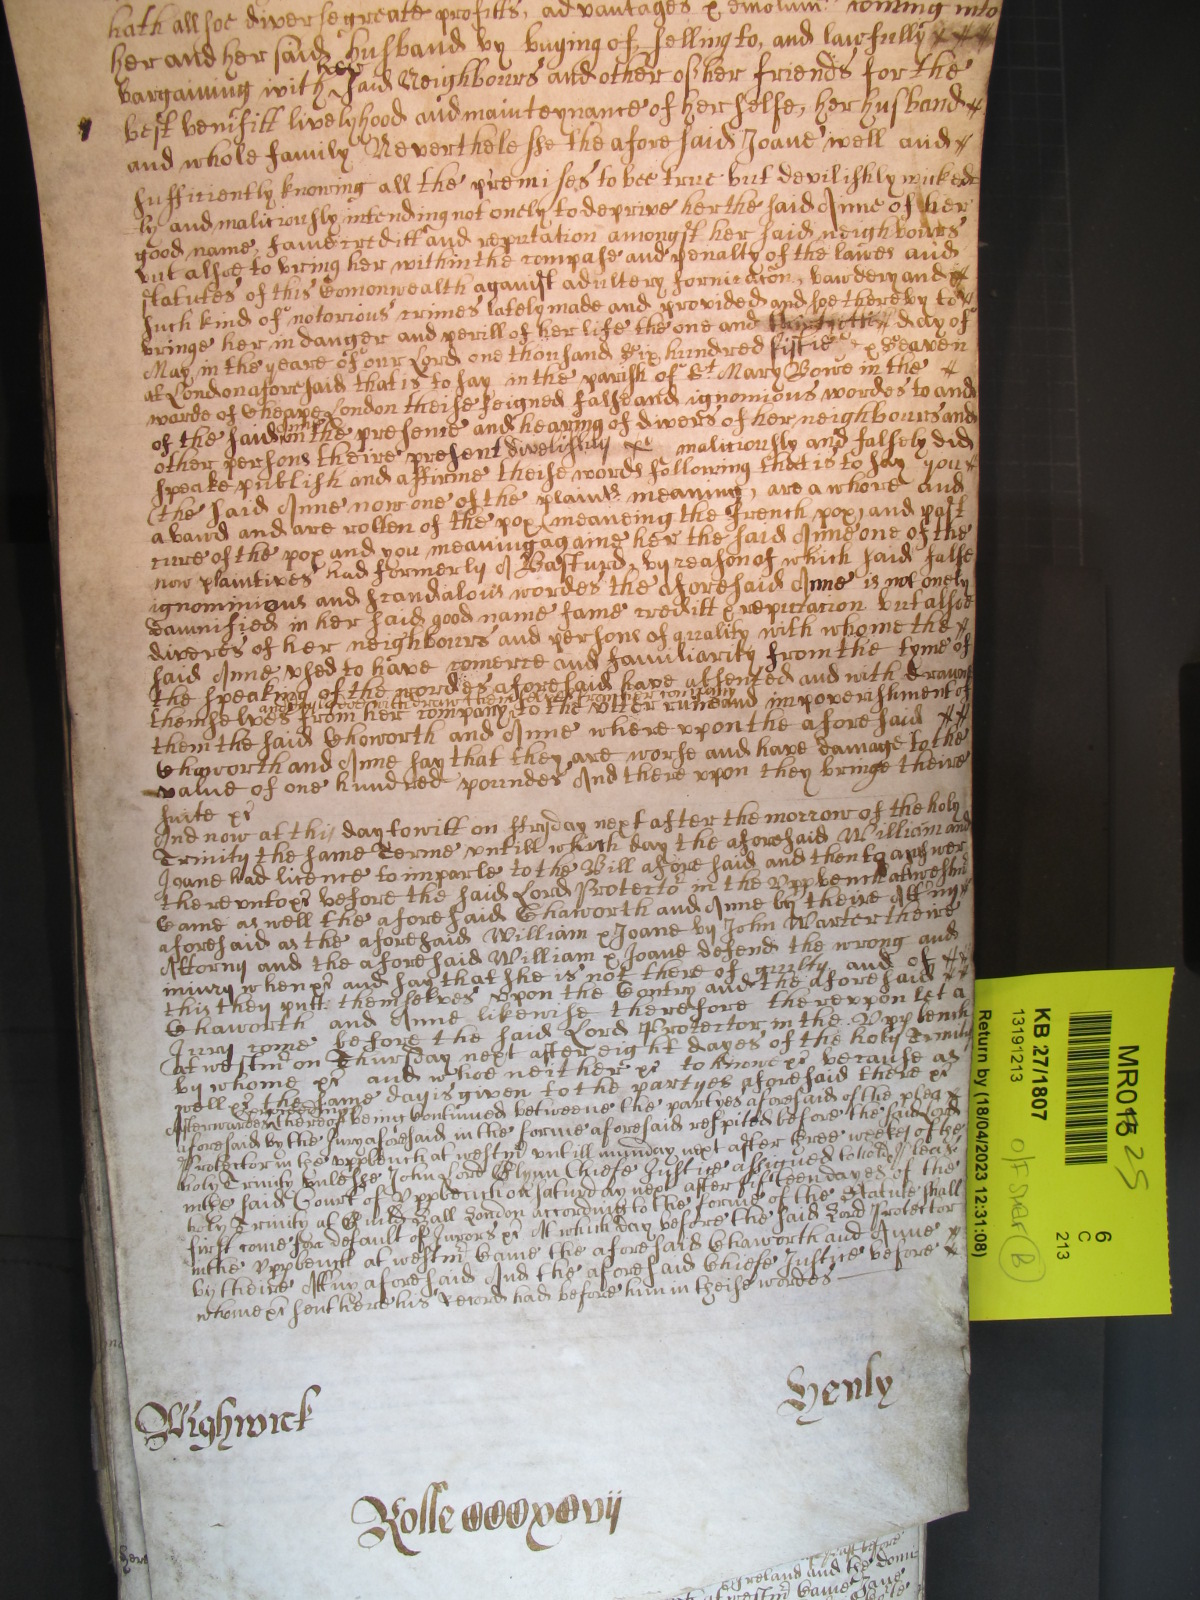 hath allsoe diverse greate profitts, advantages & emolum: coming into
her and her said husband by buying of, selling to, and lawfully
bargaining with her said Neighbours and other of her friends for the
best benifitt livelyhood and mainteynance of her selfe, her husband
and whole family Neverthelesse the aforesaid Joane well and
sufficiently knowing all the premises to bee true but devilishly wicked
ly and maliciously intending not onely to deprive her the said Anne of her
good name, fame creditt and reputation amongst her said neighbours
but alsoe to bring her within the compasse and penalty of the lawes and
statutes of this Comonwealth against adultery fornicacon, bawdery and
such kind of notorious crimes lately made and provided and soe thereby to
bringe her in danger and perill of her life the one and day of
May in the yeare of our Lord one thousand six hundred fiftie & seaven
at London aforesaid that is to say in the parish of St Mary Bowe in the
warde of Cheape London theise feigned false and ignomious wordes to and
of the said Anne in the presence and hearing of divers of her neighbours and
other persons theire present divelishly &c maliciously and falsely did
speake publish and affirme theise words following that is to say you
(the said Anne now one of the plaints meaning) are a whore and
a bawd and are rotten of the pox (meaneing the french pox) and past
cure of the pox and you meaning againe her the said Anne one of the
now plaintives had formerly A Basturd, by reason of which said false
ignominious and scandalous wordes the aforesaid Anne is not onely
damnified in her said good name fame creditt & reputacion but alsoe
diveres of her neighbours and persons of quality with whome the
said Anne used to have comerce and familiarity from the tyme of
the speaking of the wordes aforesaid have absented and with drawne
themselves from her company
and doe withdraw themselves from her company
to the utter ruine and impoverishment of
them the said Chaworth and Anne where upon the aforesaid
Chaworth and Anne say that they are worse and have damage to the
value of one hundred poundes And there upon they bringe theire
suite &c
And now at this day to witt on ffryday next after the morrow of the holy
Trinity the same Terme untill which day the aforesaid William and
Joane had licence to imparle to the Bill aforesaid and then to answer
thereunto &c before the said Lord Protector in the Upp bench at westmr
Came as well the aforesaid Chaworth and Anne by theire Attorny
aforesaid as the aforesaid William & Joane by John Warter theire
Attorny and the aforesaid William & Joane defend the wrong and
iniury when &c and say that she is not there of guilty and of
this they putt themselves Upon the Contry and the aforesaid
Chaworth and Anne likewise therefore thereupon let a
Jury come before the said Lord Protector in the Upp bench
at westmr on Thursday next after eight dayes of the holy Trinity
by whome &c and whoe neither &c to knowe &c because as
well &c the same day is given to the partyes aforesaid there &c
Afterwards thereof being continued betweene the partyes aforesaid of the plea
aforesaid by the Jury aforesaid in the forme aforesaid respited before the said Lord
Protector in the upp bench at westmr untill munday next after three weekes of the
holy Trinity unlesse John Lord Glynn Chiefe Justice assigned to hold pleas
in the said Court of Upp bench on Saturday next after fifteen dayes of the
holy Trinity at Guild Hall London according to the forme of the Statute shall
first come for default of Jurors &c At which day before the said Lord Protector
in the Upp bench at westmr Came the aforesaid Chaworth and Anne
by theire Attny aforesaid And the aforesaid Chiefe Justice before
whome &c sent here his Record had before him in theise wordes
Wighwick
Henly
Rolle CCCxCvij
MR018 25
6
C
213
KB 27/1807
13191213
O/Fisher (B)
Return by (18/04/2023 12:31:08)